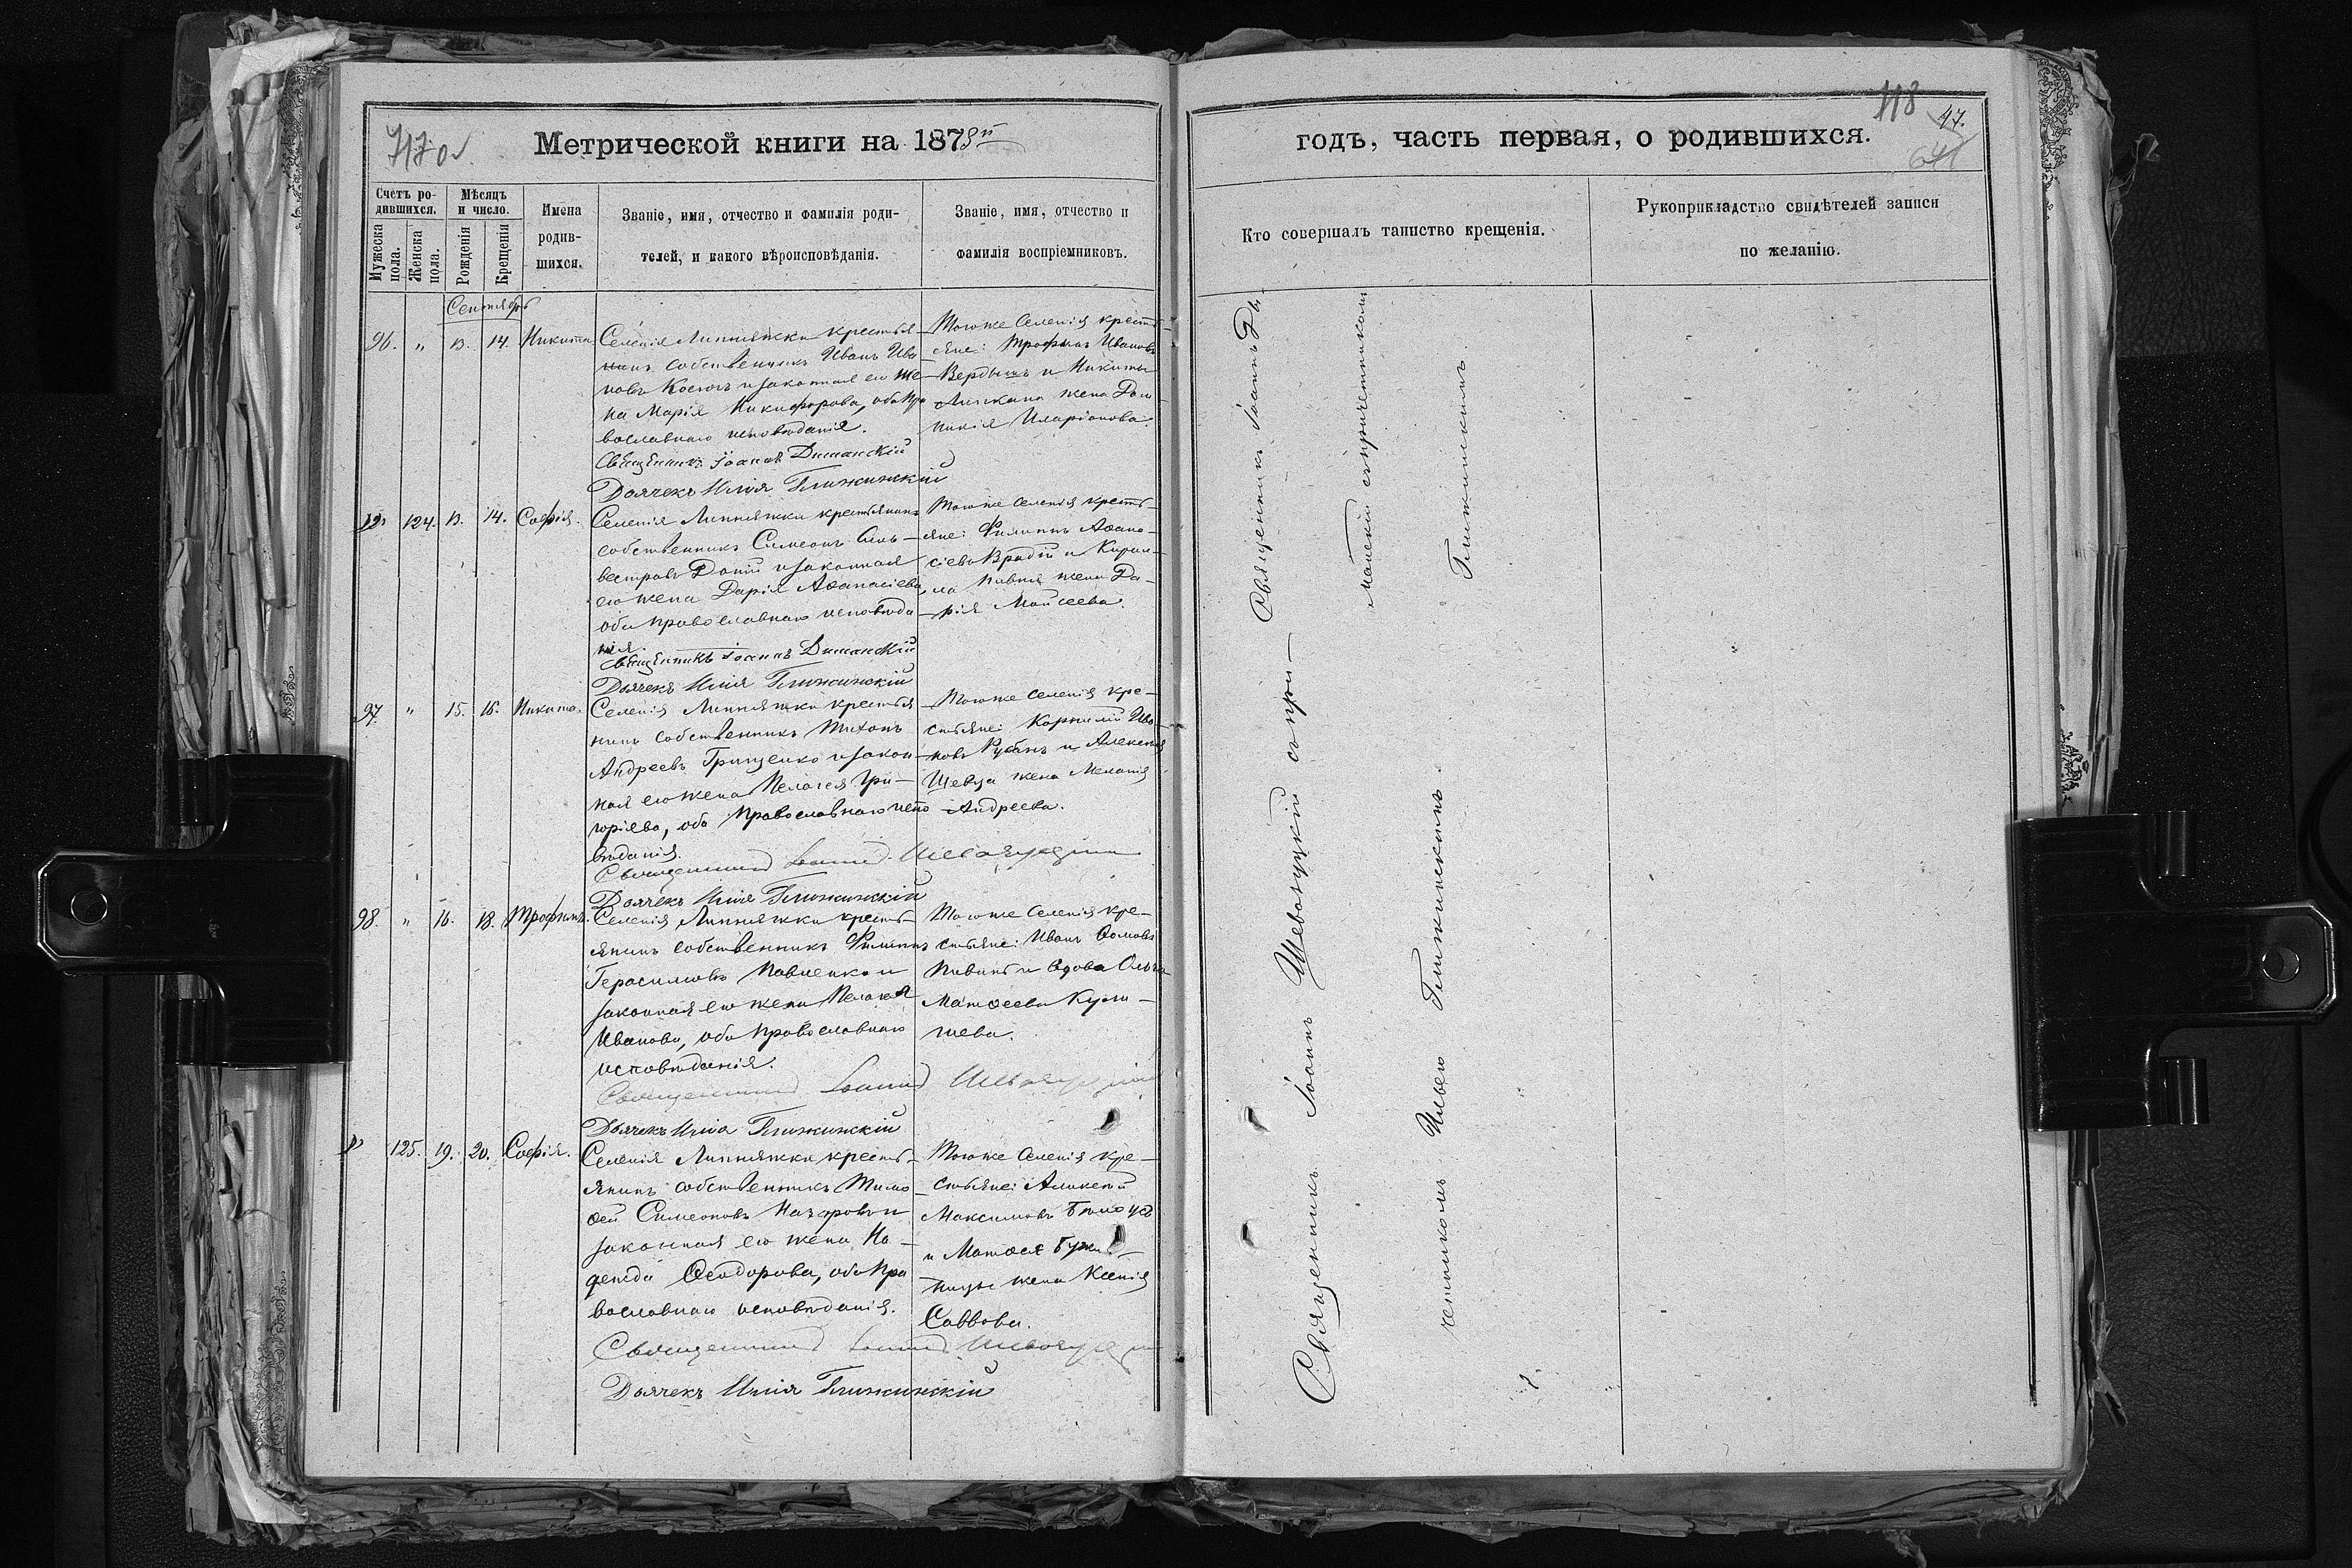 Метрической книги на 1878й
Счетъ ро-
дившихся.
Мужеска
пола.
Женска
пола.
Мѣсяцъ
и число.
Рожденія
Крещенія
Имена
родив-
шихся.
Званіе, имя, отчество и фамилія роди-
телей, и какого вѣроисповѣданія.
Званіе, имя, отчество и
фамилія воспріемниковъ.
Сентябрь
96. " 13. 14. Никита
Селенія Липняжки крестья-
нинъ собственникъ Иванъ Ива-
новъ и законная его же-
на Марія Никифорова, оба пра
вославнаго исповѣданія.
Священникъ Іоаннъ Диманскій
Дьячекъ Илія Глижинскій
Тогоже Селенія кресть-
яне: Трофимъ Ивановъ
и Никиты
жена Дом-
никія Иларіонова.
" 124. 13. 14. Софія.
Селенія Липняжки крестьянинъ
собственникъ Симеонъ Силь-
вестровъ и законная
его жена Дарія Аѳанасіева,
оба православнаго исповѣда
нія.
Священникъ Іоаннъ Диманскій
Дьячекъ Илія Глижинскій
Тогоже Селенія кресть-
яне: Филиппъ Аѳана-
сіевъ Врадій и Кирил-
ла жена Да-
рія Моисеева.
97. " 15. 15. Никита.
Селенія Липняжки крестья
нинъ собственникъ Тихонъ
Андреевъ Грищенко и закон-
ная его жена Пелагея Гри-
горіева, оба православнаго испо
вѣданія.
Священникъ Іоаннъ Шевазуцкій
Дьячекъ Илія Глижинскій
Тогоже Селенія кре-
стьяне: Корнилій Ива-
новъ Рубанъ и Алексія
Шевца жена Меланія
Андреева.
98. " 16. 18. Трофимъ.
Селенія Липняжки кресть-
янинъ собственникъ Филиппъ
Герасимовъ Павленко и
законная его жена Пелагея
Иванова, оба православнаго
исповѣданія.
Священникъ Іоаннъ Шевазуцкій
Дьячекъ Илія Глижинскій
Тогоже Селенія кре-
стьяне: Иванъ Ѳомовъ
и вдова Ольга
Матѳеева
" 125. 19. 20. Софія.
Селенія Липняжки кресть-
янинъ собственникъ Тимо-
ѳей Симеоновъ и
законная его жена На-
дежда Ѳеодорова, оба пра
вославнаго исповѣданія.
Священникъ Іоаннъ Шевазуцкій
Дьячекъ Илія Глижинскій
Тогоже Селенія кре-
стьяне: Алексѣй
Максимовъ Бѣлоусъ
и Матѳея
жена Ксенія
Саввова.
118
47.
годъ, часть первая, о родившихся.
Кто совершалъ таинство крещенія.
Рукоприкладство свидѣтелей записи
по желанію.
Священникъ Іоаннъ Ди-
манскій съ причетникомъ
Глижинскимъ
Священникъ Іоаннъ Шевазуцкій съ при-
четникомъ Ильею Глижинскимъ.